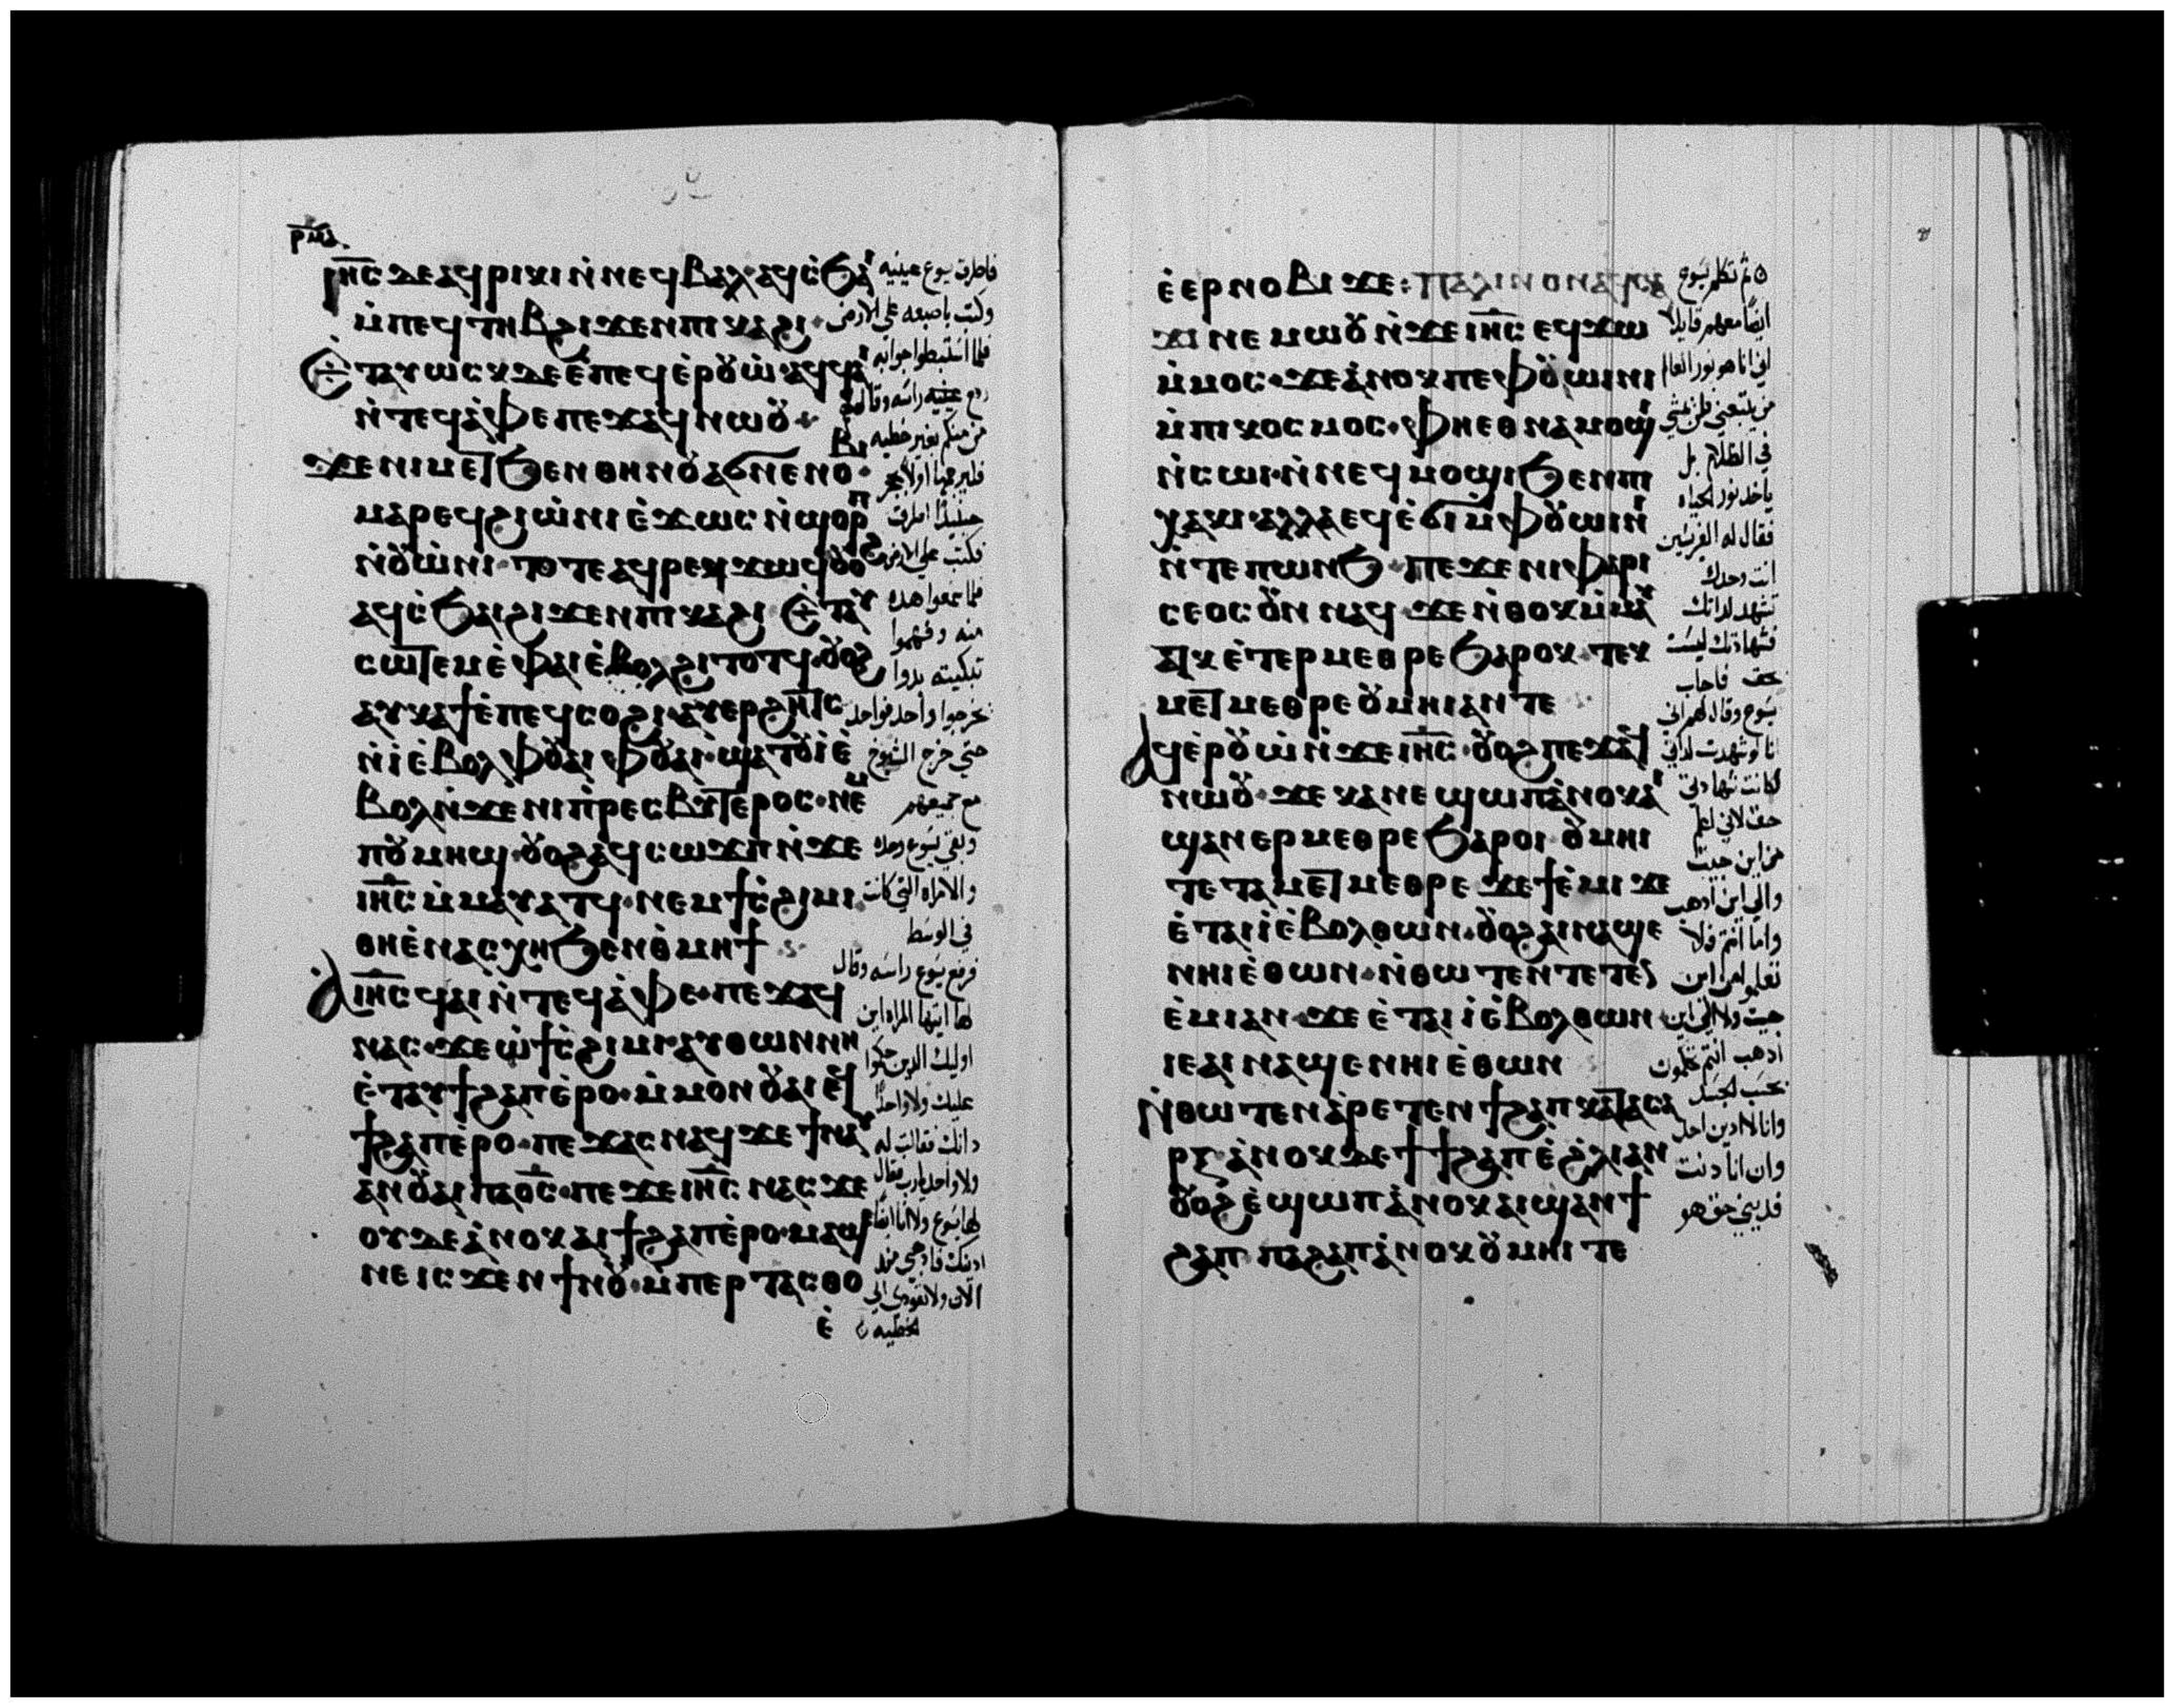 ⲓⲏ̅ⲥ ⲇⲉ ⲁϥⲣⲓⲕⲓ ⲛ̇ⲛⲉϥⲃⲁⲗ ⲁϥⲥ̇ϧⲁⲓ
ⲙ̇ⲡⲉϥⲧⲏⲃ ϩⲓϫⲉⲛ ⲡⲓⲕⲁϩⲓ·
Ⲉ̇ⲧⲁⲩⲱⲥⲕ ⲇⲉ ⲉ̇ⲡⲉϥⲉ̇ⲣⲟⲩⲱ̇ ⲁϥϥⲁⲓ
ⲛ̇ⲧⲉϥⲁ̇ⲫⲉ ⲡⲉϫⲁϥ ⲛⲱⲟⲩ·
ϫⲉ ⲛⲓⲙ ⲉⲧϧⲉⲛ ⲑⲏⲛⲟⲩ ⲁϭⲛⲉ ⲛⲟⲃⲓ·
ⲙⲁⲣⲉϥϩⲓⲱ̇ⲛⲓ ⲉ̇ϫⲱⲥ ⲛ̇ϣⲟⲣⲡ
ⲛ̇ⲟⲩⲱ̇ⲛⲓ· ⲧⲟⲧⲉ ⲁϥⲣⲉⲕ ϫⲱϥ ⲟⲩⲟϩ
ⲁϥⲥ̇ϧⲁⲓ ϩⲓϫⲉⲛ ⲡⲓⲕⲁϩⲓ Ⲉ̇ⲧⲁⲩ
ⲥⲱⲧⲉⲙ ⲉ̇ⲫⲁⲓ ⲉ̇ⲃⲟⲗ ϩⲓⲧⲟⲧϥ· ⲟⲩⲟϩ
ⲁⲩⲕⲁϯ ⲉ̇ⲡⲉϥⲥⲟϩⲓ· ⲁⲩⲉⲣϩⲏⲧⲥ
ⲛ̇ⲓ̇ ⲉ̇ⲃⲟⲗ ⲫⲟⲩⲁⲓ ⲫⲟⲩⲁⲓ· ϣⲁⲧⲟⲩⲓ̇ ⲉ̇
ⲃⲟⲗ ⲛ̇ϫⲉ ⲛⲓⲡ̇ⲣⲉⲥⲃⲩⲧⲉⲣⲟⲥ· ⲛⲉⲙ
ⲡⲟⲩⲙⲏϣ· ⲟⲩⲟϩ ⲁϥⲥⲱϫⲡ ⲛ̇ϫⲉ
ⲓⲏ̅ⲥ ⲙ̇ⲙⲁⲩⲁⲧϥ· ⲛⲉⲙ ϯⲥ̇ϩⲓⲙⲓ·
ⲑⲏ ⲉ̇ⲛⲁⲥⲭⲏ ϧⲉⲛ ⲑ̇ⲙⲏϯ
Ⲁ ⲓⲏ̅ⲥ ϥⲁⲓ ⲛ̇ⲧⲉϥⲁ̇ⲫⲉ· ⲡⲉϫⲁϥ
ⲛⲁⲥ· ϫⲉ ⲱ̇ ϯⲥ̇ϩⲓⲙⲓ· ⲁⲩⲑⲱⲛ ⲛⲏ
ⲉ̇ⲧⲁⲩϯϩⲁⲡ ⲉ̇ⲣⲟ· ⲙ̇ⲙⲟⲛ ⲟⲩⲁⲓ ⲉϥ
ϯϩⲁⲡ ⲉ̇ⲣⲟ· ⲡⲉϫⲁⲥ ⲛⲁϥ ϫⲉ ϯⲛⲁⲩ
ⲁⲛ ⲟⲩⲁⲓ ⲡⲁⲟ̅ⲥ· ⲡⲉϫⲉ ⲓⲏ̅ⲥ ⲛⲁⲥ ϫⲉ
ⲟⲩⲇⲉ ⲁ̇ⲛⲟⲕ ⲁⲓϯϩⲁⲡ ⲉ̇ⲣⲟ· ⲙⲁϣⲉ
ⲛⲉ ⲓⲥϫⲉⲛ ϯⲛⲟⲩ· ⲙ̇ⲡⲉⲣⲧⲁⲥⲑⲟ
ⲉ̇
فاطرق يسوع عينيه
وكتب باصبعه على الارض
فلما استبطوا جوابه
رفع عينيه راسه وقال لهم
من منكم بغير خطيه
فلما سمعوا هذه
منه وفهموا
تبكيته بدوا
حتي خرج الشيوخ
مع جميعهم
وبقي يسوع وحده
والامراه التي كانت
في الوسط
فرفع يسوع راسه وقال
لها ايتها المراه اين
عليك ولا واحدًا
دانك فقالت له
الان ولا تعودي الي
الخطيه
ⲉ̇ⲉⲣⲛⲟⲃⲓ ϫⲉ: ⲡⲁⲗⲓⲛ ⲟⲛ ⲁϥⲥⲁ
ϫⲓ ⲛⲉⲙⲱⲟⲩ ⲛ̇ϫⲉ ⲓⲏ̅ⲥ ⲉϥϫⲱ
ⲙ̇ⲙⲟⲥ· ϫⲉ ⲁ̇ⲛⲟⲕ ⲡⲉ ⲫⲟⲩⲱⲓⲛⲓ
ⲙ̇ⲡⲓⲕⲟⲥⲙⲟⲥ· ⲫⲏ ⲉⲑⲛⲁⲙⲟϣⲓ
ⲛ̇ⲥⲱⲓ· ⲛ̇ⲛⲉϥⲙⲟϣⲓ ϧⲉⲛ ⲡⲓ
ⲭⲁⲕⲓ· ⲁⲗⲗⲁ ⲉϥⲉ̇ϭⲓ ⲙ̇ⲫⲟⲩⲱⲓⲛⲓ
ⲛ̇ⲧⲉ ⲡⲱⲛϧ· ⲡⲉϫⲉ ⲛⲓⲫⲁⲣⲓ
ⲥⲉⲟⲥ ⲟⲩⲛ ⲛⲁϥ ϫⲉ ⲛ̇ⲑⲟⲕ ⲙ̇ⲙⲁⲩ
ⲁⲧⲕ ⲉ̇ⲧⲉⲣⲙⲉⲑⲣⲉ ϧⲁⲣⲟⲕ· ⲧⲉⲕ
ⲙⲉⲧⲙⲉⲑⲣⲉ ⲟⲩⲙⲏⲓ ⲁⲛ ⲧⲉ
Ⲁϥⲉ̇ⲣⲟⲩⲱ̇ ⲛ̇ϫⲉ ⲓⲏ̅ⲥ· ⲟⲩⲟϩ ⲡⲉϫⲁϥ
ⲛⲱⲟⲩ· ϫⲉ ⲕⲁⲛ ⲉϣⲱⲡ ⲁ̇ⲛⲟⲕ ⲁⲓ
ϣⲁⲛⲉⲣⲙⲉⲑⲣⲉ ϧⲁⲣⲟⲓ· ⲟⲩⲙⲏⲓ
ⲧⲉ ⲧⲁⲙⲉⲧⲙⲉⲑⲣⲉ ϫⲉ ϯⲉ̇ⲙⲓ ϫⲉ
ⲉ̇ⲧⲁⲓⲓ̇ ⲉ̇ⲃⲟⲗ ⲑⲱⲛ· ⲟⲩⲟϩ ⲁⲓⲛⲁϣⲉ
ⲛⲏⲓ ⲉ̇ⲑⲱⲛ· ⲛ̇ⲑⲱⲧⲉⲛ ⲧⲉⲧⲉⲛ
ⲉ̇ⲙⲓ ⲁⲛ· ϫⲉ ⲉ̇ⲧⲁⲓⲓ̇ ⲉ̇ⲃⲟⲗ ⲑⲱⲛ
ⲓⲉ ⲁⲓⲛⲁϣⲉ ⲛⲏⲓ ⲉ̇ⲑⲱⲛ
Ⲛ̇ⲑⲱⲧⲉⲛ ⲁ̇ⲣⲉⲧⲉⲛϯϩⲁⲡ ⲕⲁⲧⲁ ⲥⲁ
ⲣⲝ ⲁ̇ⲛⲟⲕ ⲇⲉ ϯϯϩⲁⲡ ⲉ̇ϩ̇ⲗⲓ ⲁⲛ
ⲟⲩⲟϩ ⲉ̇ϣⲱⲡ ⲁ̇ⲛⲟⲕ ⲁⲓϣⲁⲛϯ
ϩⲁⲡ ⲡⲁϩⲁⲡ ⲁ̇ⲛⲟⲕ ⲟⲩⲙⲏⲓ ⲧⲉ
ثم تكلم يسوع
ايضًا معهم قايلا
اني انا هو نور العالم
من يتبعني فلن يمشي
في الظلام بل
ياخد نور الحياه
فقال له الفريسين
انت وحدك
تشهد لداتك
فشهادتك ليست
حق فاجاب
يسوع وقال لهم اني
انا لو شهدت لداتي
لكانت شهادتي
حق لاني اعلم
من اين جيت
والي اين ادهب
واما انتم فلا
تعلموا من اين
جيت ولا الي اين
وانا لا ادين احد
وان انا دنت
فديني حق هو